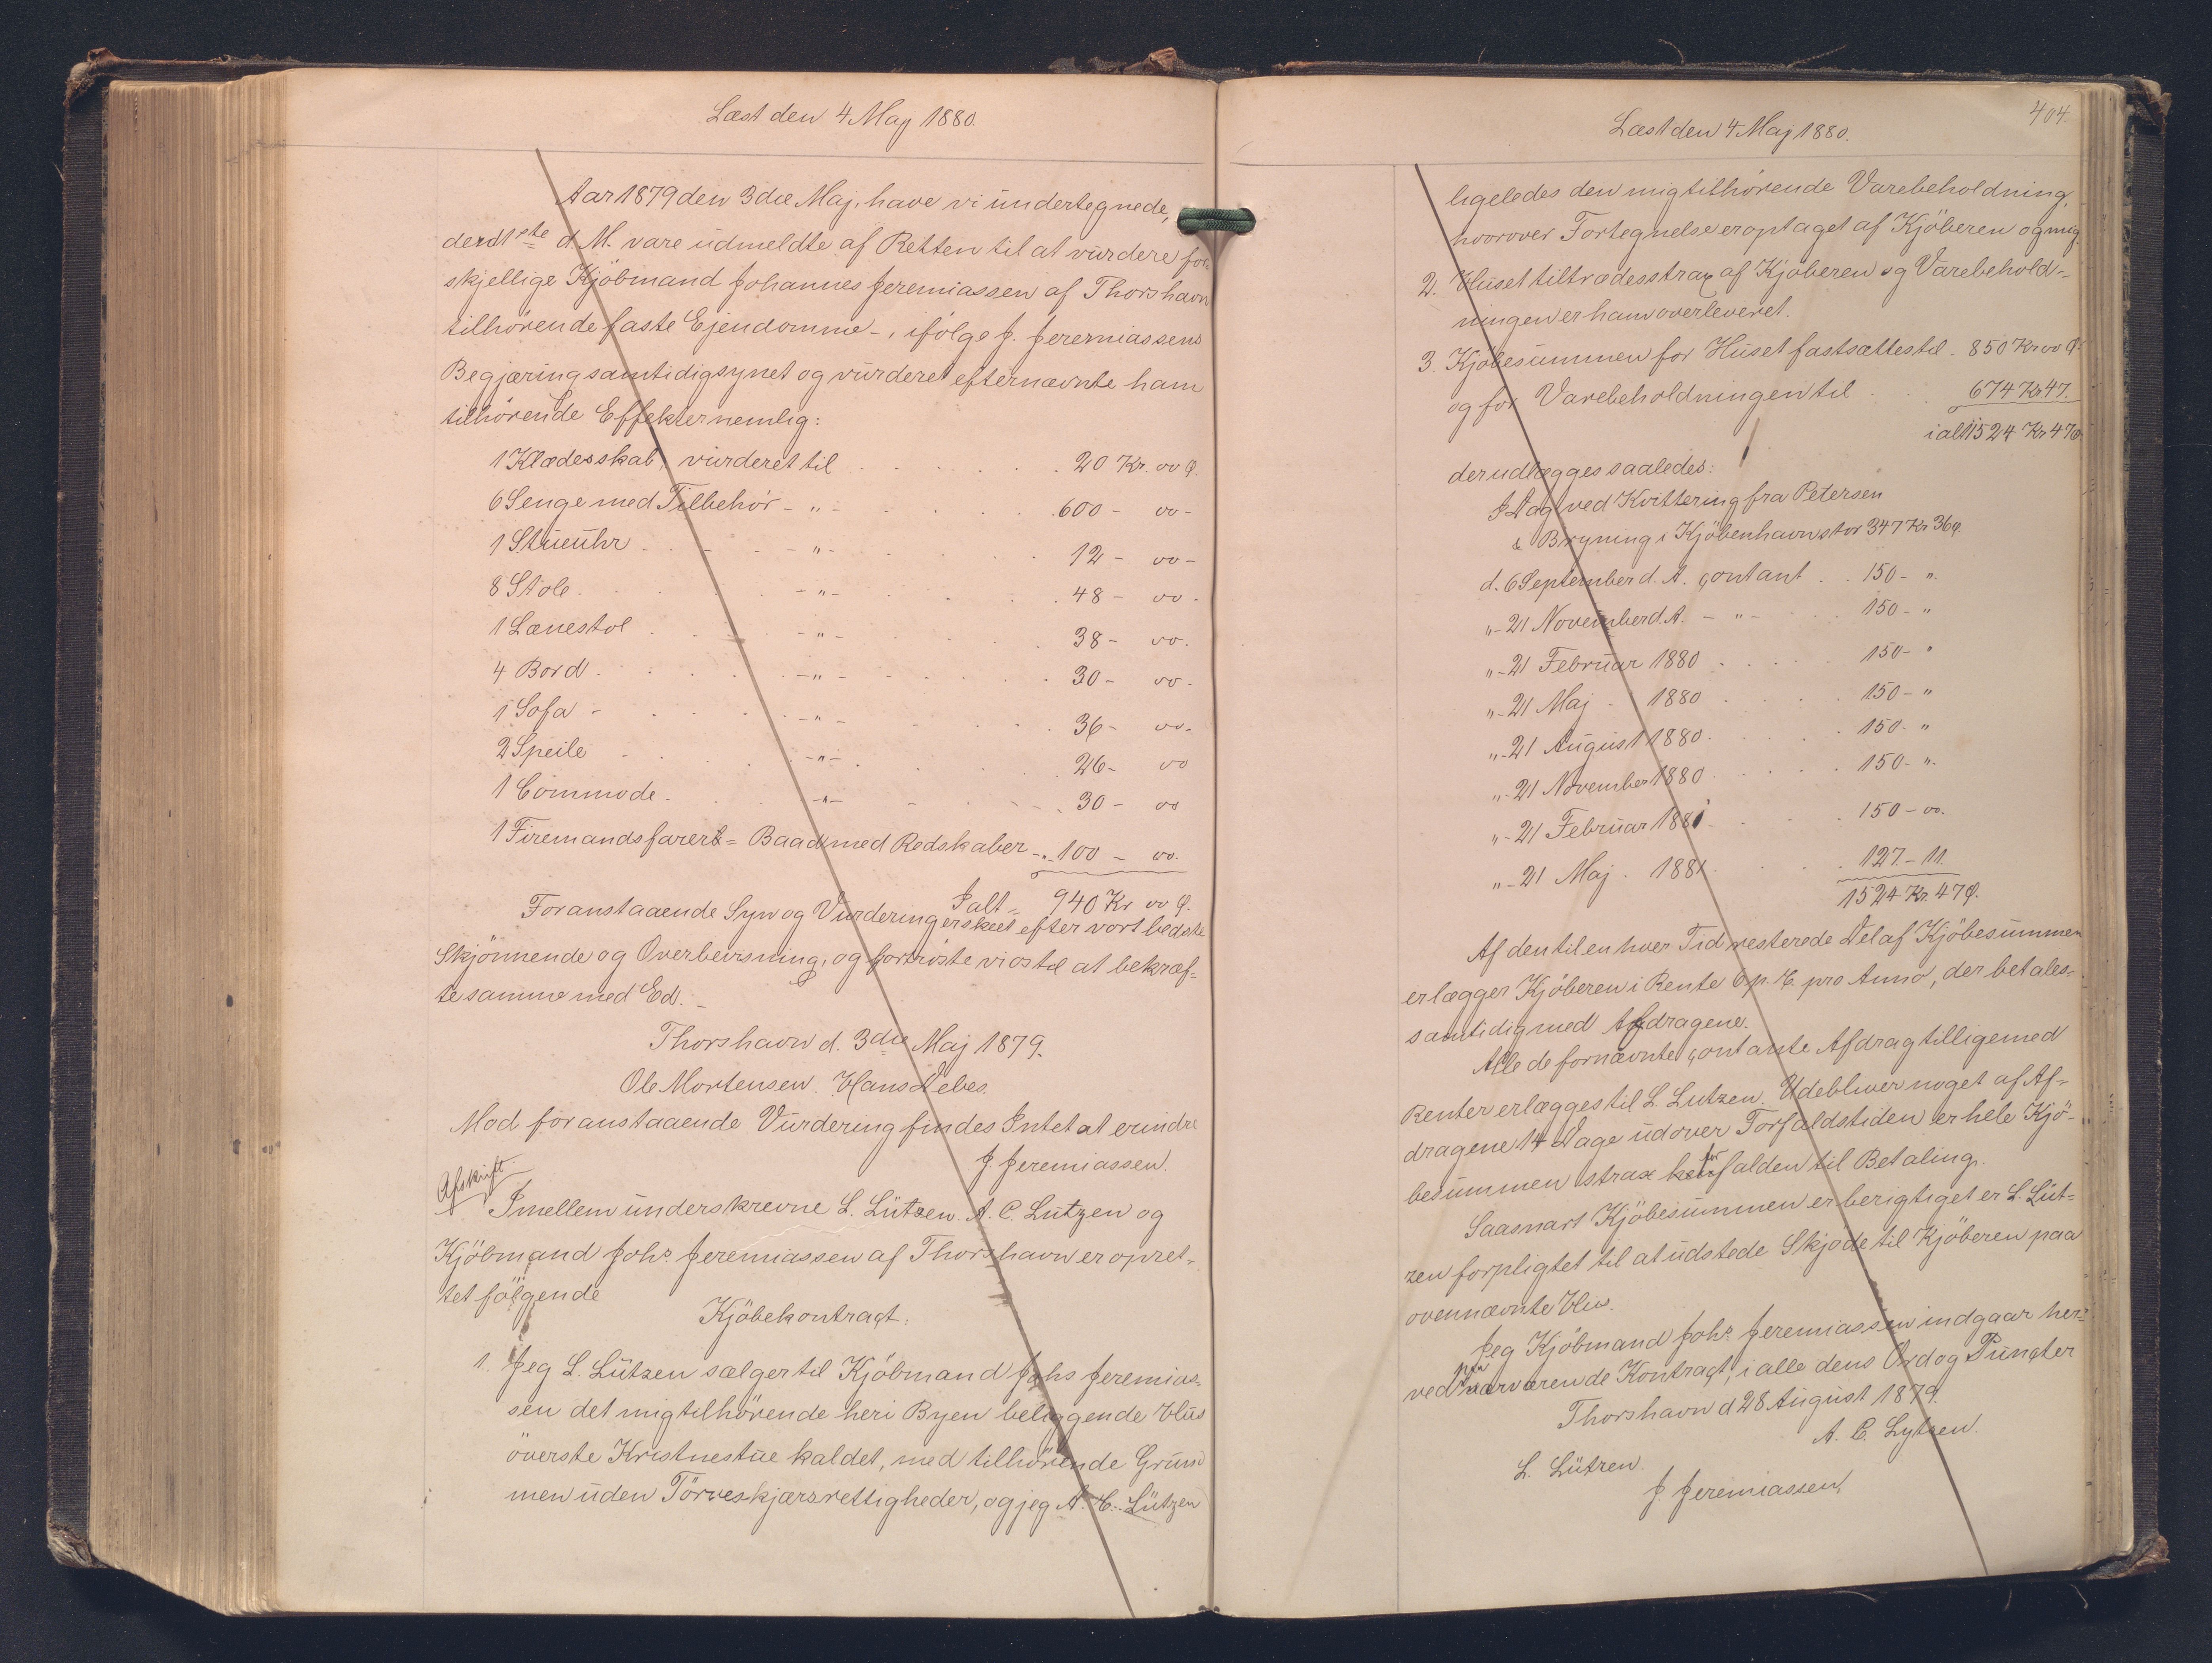 Læst den 4 Maj 1880.
Aar 1879 den 3die Maj, have vi undertegnede,
der d 1ste d. M. vare udmeldte af Retten til at vurdere for-
skjellige Kjöbmand Johannes Jeremiassen af Thorshavn
tilhörende faste Ejendomme -, ifölge J. Jeremiassens
Begjæring samtidig synet og vurderet efternævnte ham
tilhörende Effekter nemlig:
1 Klædesskab, vurderet til . . . 20 Kr. 00 Ø.
6 Senge med Tilbehör - " - . . . 600 - 00 -
1 Stueuhr . . - " - . . . 12 - 00 -
8 Stole . . - " - . . . 48 - 00 -
1 Lænestol . . - " - . . . 38 - 00 .
4 Bord . . - " - . . . 30 - 00 -
1 Sofa - . . - " - . . . 36 - 00 .
2 Speile . . - " - . . . 26 - 00
1 Commode . . - " - . . . 30 - 00
1 Firemandsfarert = Baad med Redskaber - . - 100 - 00 .
Ialt = 940 Kr 00 Ø.
Foranstaaende Syn og Vurdering er skeet efter vort bedste
Skjönnende og Overbevisning, og fortröste vi os til at bekræf-
te samme med Ed. -
Thorshavn d. 3die Maj 1879.
Ole Mortensen. Hans Debes.
Mod foranstaaende Vurdering findes Intet at erindre
J Jeremiassen.
Afskrift
Imellem underskrevne L. Lützen. A. C. Lützen og
Kjöbmand Johs. Jeremiassen af Thorshavn er opret-
tet fölgende
Kjöbekontract.
1. Jeg L. Lützen sælger til Kjöbmand Johs Jeremias-
sen det mig tilhörende heri Byen beliggende Hus
överste Kristnestue kaldet, med tilhörende Grund
men uden Törveskjærsrettigheder, og jeg A. C. Lützen
404.
Læst den 4 Maj 1880.
ligeledes den mig tilhörende Varebeholdning,
hvorover Fortegnelse er optaget af Kjöberen og mig.
2. Huset tiltrædes strax af Kjöberen og Varebehold-
ningen er ham overleveret.
3. Kjöbesummen for Huset fastsættes til . 850 Kr 00 Ø.
og for Varebeholdningen til . . 674 Kr 47.
ialt 1524 Kr 47 Ø
der udlægges saaledes:
I Dag ved Kvittering fra Petersen
& Bryning i Kjöbenhavn stor 347 Kr 36 Ø
d. 6 September d. A. contant . . 150 - "
" - 21 November d. A. - " - . . 150 - "
" - 21 Februar 1880 . . . 150 - "
" - 21 Maj . 1880 . . . 150 - "
" - 21 August 1880 . . . 150 - "
" - 21 November 1880 . . . 150 - "
" - 21 Februar 1881 . . . 150 - 00.
" - 21 Maj . 1881 . . . 127 - 11
1524 Kr. 47 Ø.
Af den til en hver Tid resterede Del af Kjöbesummen
erlægger Kjöberen i Rente 6 p. C. pro Anno, der betales-
samtidig med Afdragene.
Alle de fornævnte contante Afdrag tilligemed
Renter erlægges til L. Lutzen. Udebliver noget af Af-
dragene 14 Dage udover Forfaldstiden er hele Kjö-
besummen strax for falden til Betaling.
Saasnart Kjöbesummen er berigtiget er L. Lüt-
zen forpligtet til at udstede Skjöde til Kjöberen paa
ovennævnte Hus.
Jeg Kjöbmand Johs. Jeremiassen indgaar her-
ved paa nærværende Kontract, i alle dens Ord og Puncter
Thorshavn d 28 August 1879.
A. C. Lytzen.
L. Lützen.
J. Jeremiassen.